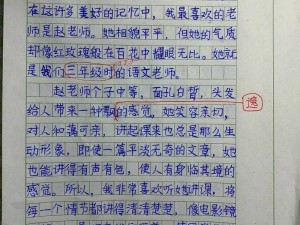 在这许多美好的记忆中，我最喜欢的老
师是赵老师。她相貌平平，但她的气质
却像红玫瑰般在百花中耀眼无比。她就
是我们三年级时的语文老师。
赵老师个子中等，面孔白皙，头发
给人带来一种飘的感觉，她笑容亲切，
逸
对人和蔼可亲，讲起课来也总是那么生
动形象，即使一篇平淡无奇的文章，她
也能讲得有声有色，使人有身临其境的
感觉。所以，我非常喜欢听她讲课，将
每一个情节都讲得清清楚楚，像电影镜